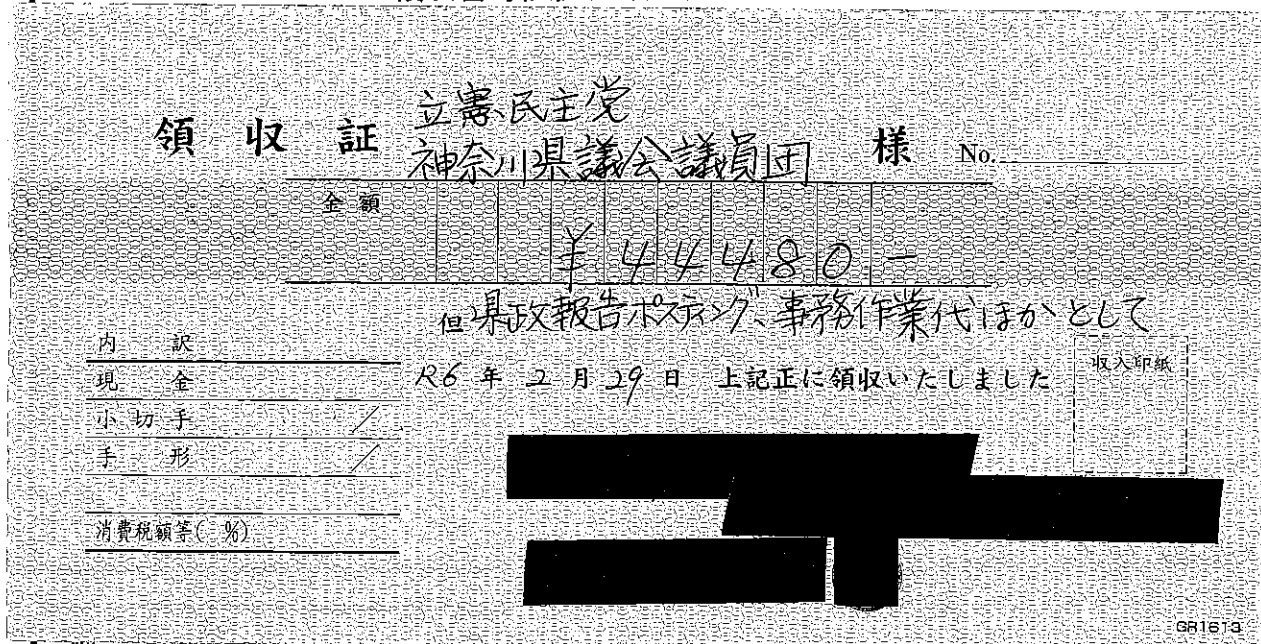 領収証 立憲民主党
神奈川県議会議員団 様 No.
金額 ¥44480-
但 県政報告ポスティング、事務作業代ほかとして
内訳
現金 R6年2月29日 上記正に領収いたしました 収入印紙
小切手
手形
消費税額等( %)
GR1613